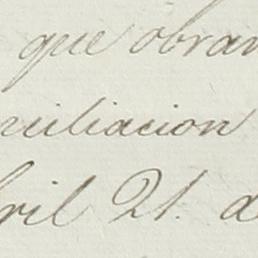 que obran
nciliacion
bril 21. d